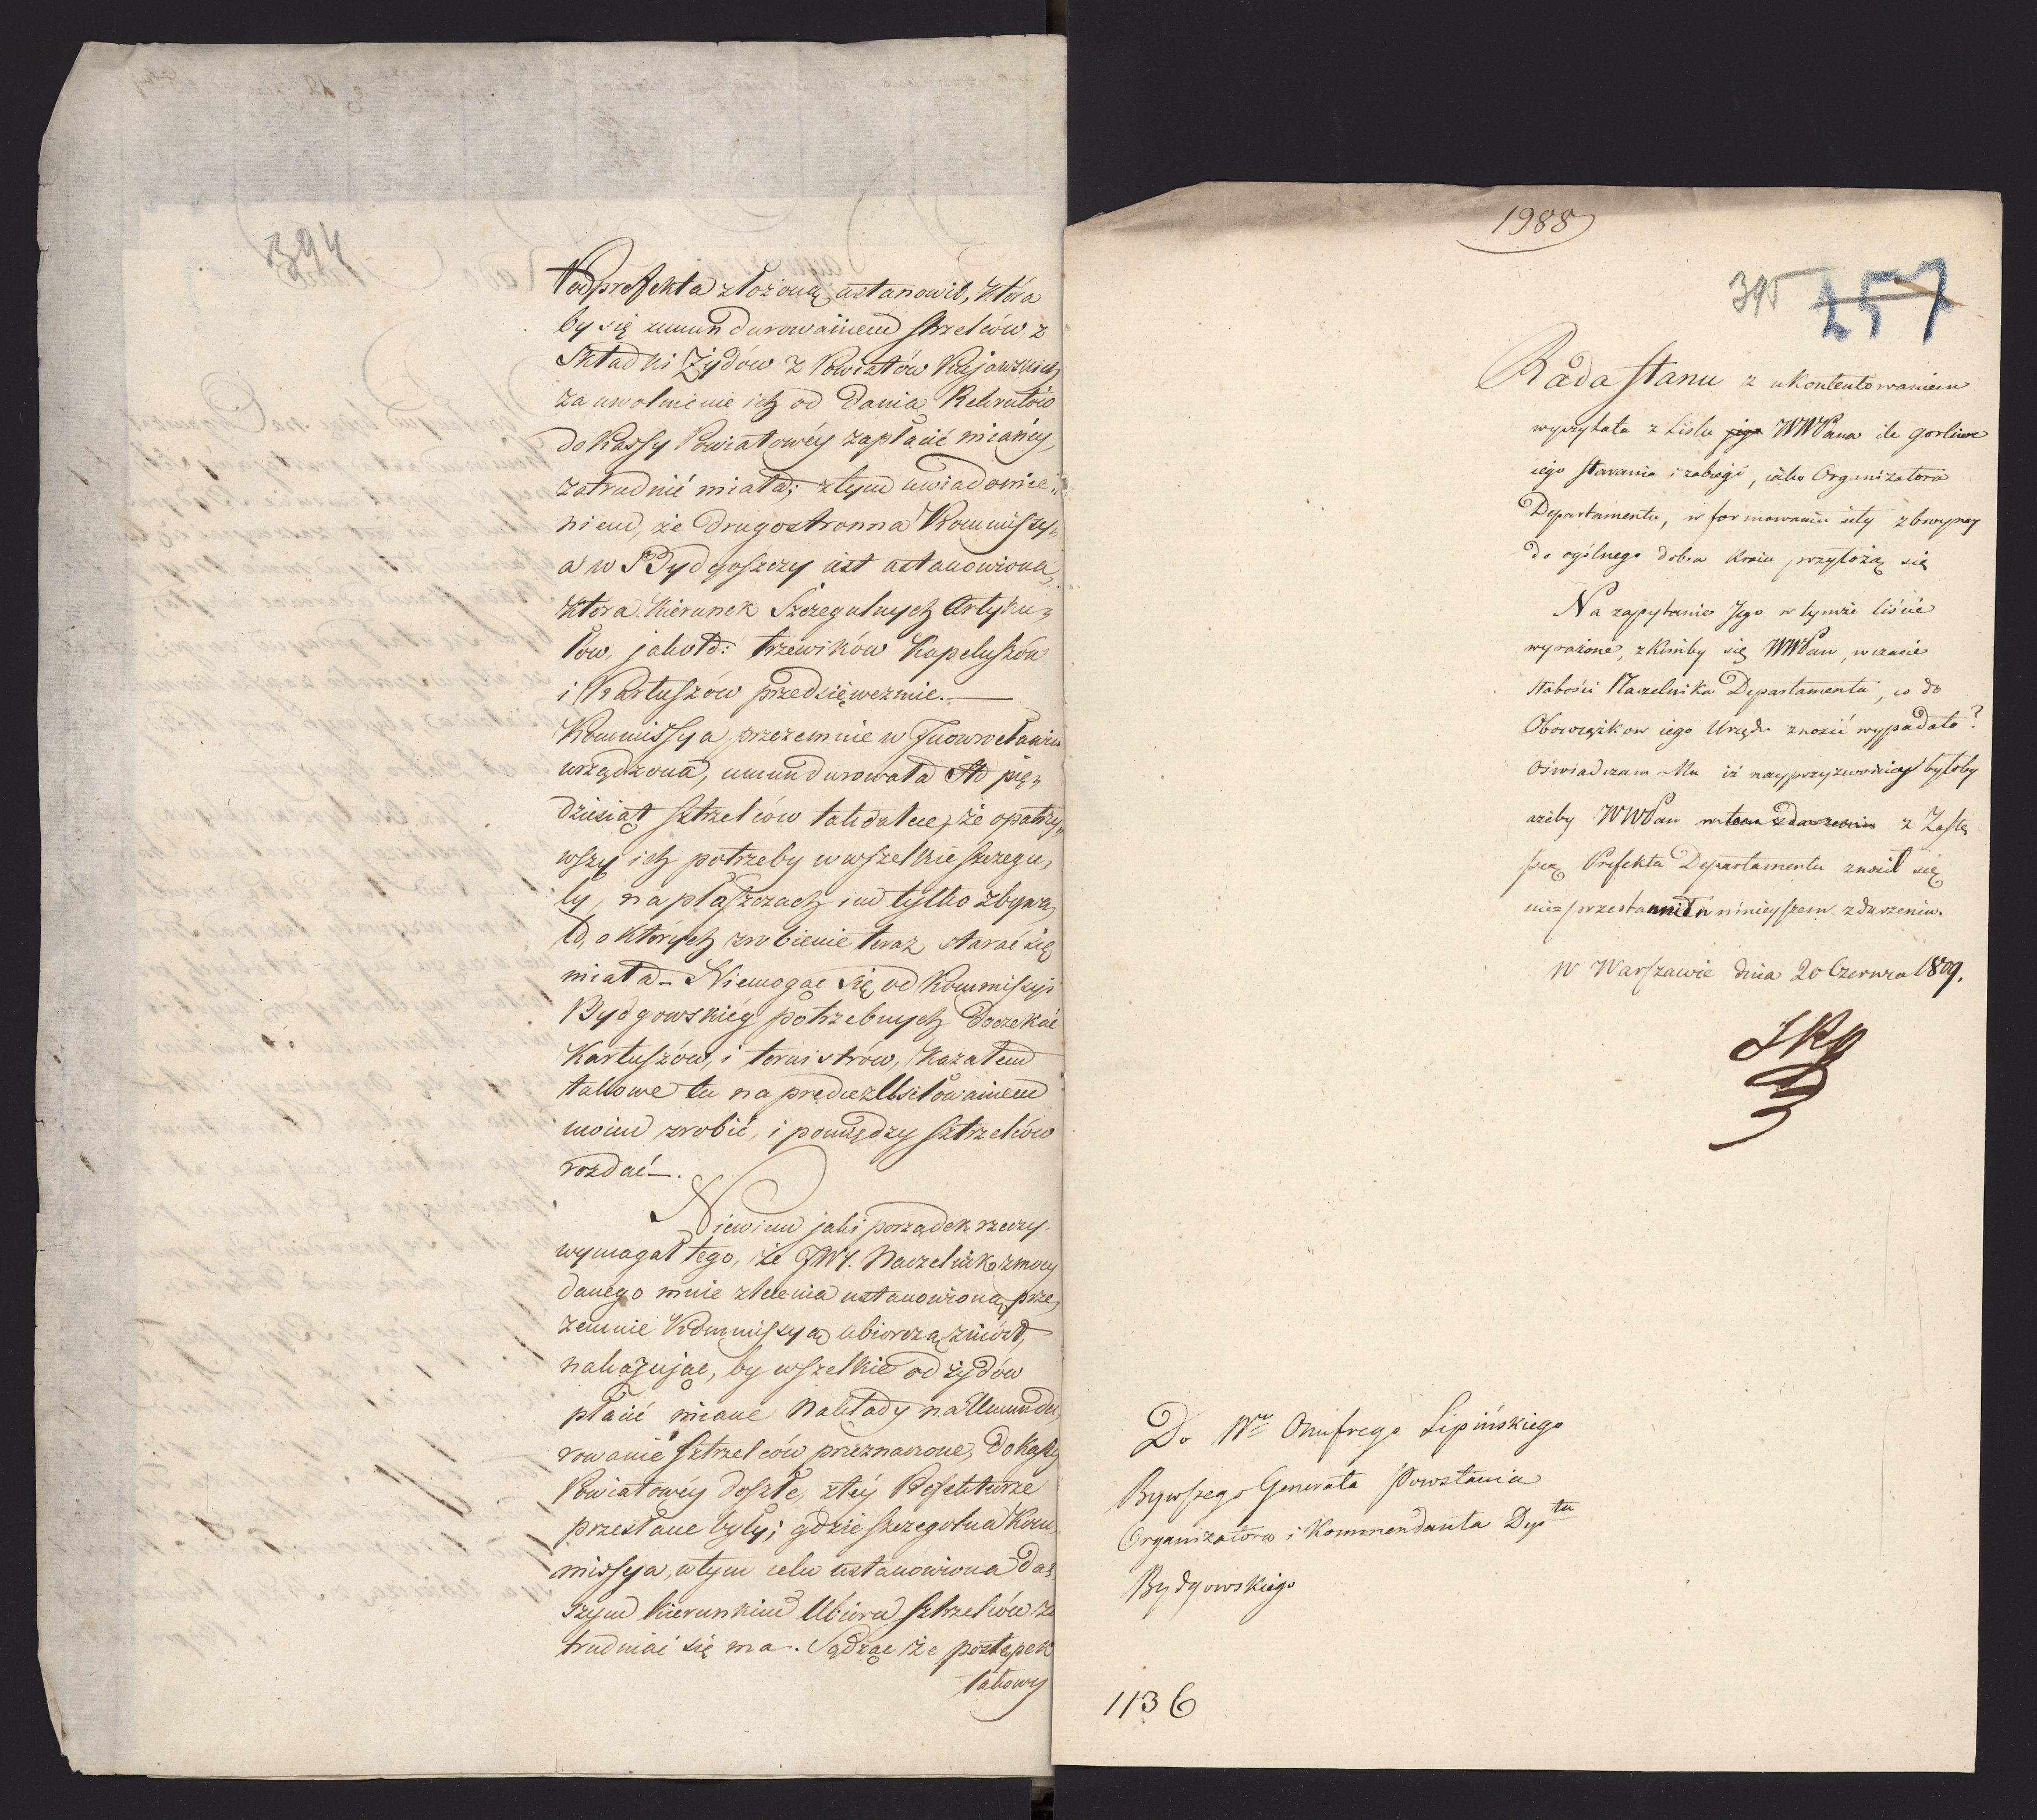 394
Podprefekta złożoną ustanowił, która
by się umundurowaniem strzelców z
Składki Żydów z Powiatów Kujawskich
za uwolnienie ich od dania Rekrutów
do Kassy Powiatowéy zapłacić mianéy,
zatrudnić miała; z tym uwiadomie„
niem, że drugostronna Kommissy„
a w Bydgoszczy iest ustanowiona,
która kierunek Szczegulnych Artyku„
łow, jako td: trzewików Kapeluszów
i Kartuszów przedsięwezmie.—
Kommissya przezemnie w Inowrocławiu
urządzona, umundurowała Sto pię„
dziesiąt sztrzelców tak dalece, że opatrzy„
wszy ich potrzeby w wszelkie szczegu„
ły, na płaszczach im tylko zbywa„
ło, o których zrobienie teraz starać się
miała— Niemogąc się od Kommissyi
Bydgowskiéy potrzebnych doczekać
Kartuszów, i tornistrów, kazałem
takowe tu na prędce z Usiłowaniem
moim zrobić, i pomiędzy sztrzelców
rozdać—.
Niewiem jaki porządek rzeczy
wymagał tego, że JWY. Naczelnik z mocy
danego mnie zlecenia ustanowioną prze„
zemnie Kommissyą ubiorczą zniósł,
nakazując, by wszelkie od żydów
płacić miane Nakłady na Umundu„
rowanie sztrzelców przeznaczone, do Kassy
Powiatowéy doszłe, z téy Prefekturze
przesłane były; gdzie szczegolna Kom
missya, w tym celu ustanowiona dal
szym kierunkiem Ubioru sztrzelców za
trudniać się ma. Sądząc że postępek
takowy
1988
395 257
Rada Stanu z ukontentowaniem
wyczytała z Listu jego WWPana ile gorliwe
iego starania i zabiegi, iako Organizatora
Departamentu, w formowaniu siły zbroyney
do ogólnego dobra Kraiu przyłożą się
Na zapytanie Jego w tymże liście
wyrażone, z kimby się WWPan, w czasie
słabości Naczelnika Departamentu, co do
Obowiązkow iego Urzędu znosić wypadało?
Oświadczam Mu iż nayprzyzwoiciey byłoby
ażeby WWPan w tem zdarzeniu z Zastę
pcą Prefekta Departamentu znosił się
w ninieyszem zdarzeniu.
W Warszawie dnia 20 Czerwca 1809.
Do Wgo Onufrego Lipińskiego
Bywszego Generała Powstania
Organizatora i Kommendanta Deptu
Bydgowskiego
1136